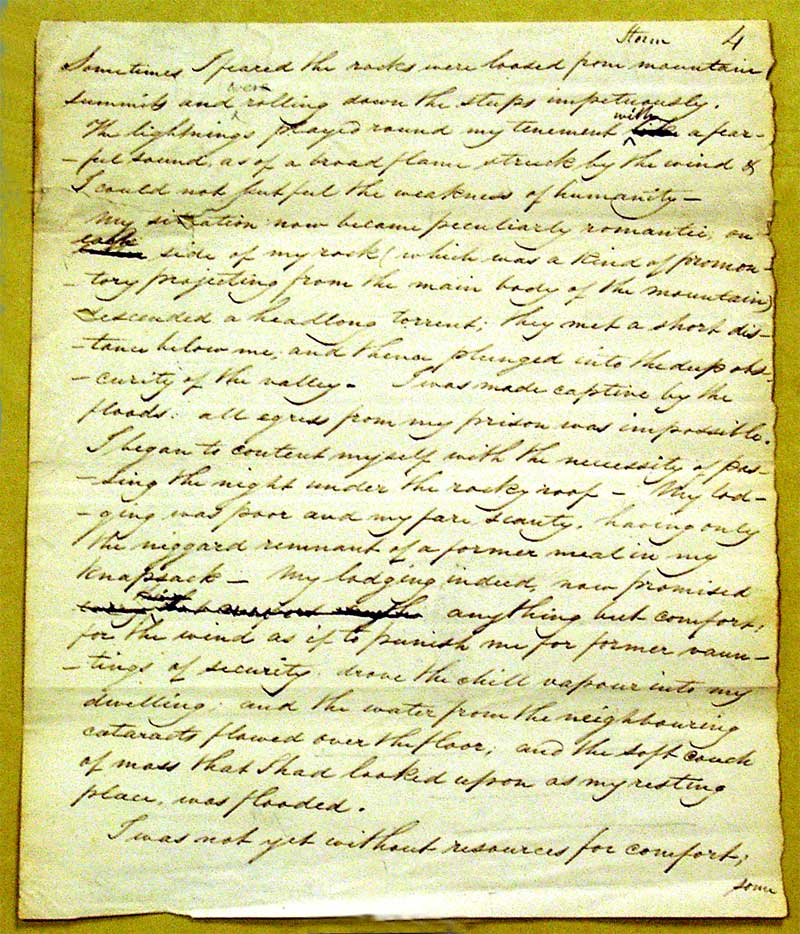 Storm 4
Sometimes I feared the rocks were loosed from mountain
were
summits and rolling down the steeps impetuously.
with
The lightnings played round my tenement like a fear-
-ful sound, as of a broad flame struck by the wind &
I could not but feel the weakness of humanity —
My situation now became peculiarly romantic; on
side of my rock (which was a kind of promon-
-tory projecting from the main body of the mountain)
descended a headlong torrent; they met a short dis-
-tance below me, and thence plunged into the deep obs-
-curity of the valley. I was made captive by the
floods: all egress from my prison was impossible.
I began to content myself with the necessity of pas-
-sing the night under the rocky roof — My lod-
-ging was poor and my fare scanty, having only
the niggard remnant of a former meal in my
knapsack — My lodging indeed, now promised
anything but comfort;
for the wind as if to punish me for former vaun-
-tings of security, drove the chill vapour into my
dwelling; and the water from the neighbouring
cataracts flowed over the floor; and the soft couch
of moss that I had looked upon as my resting
place, was flooded.
I was not yet without resources for comfort;
some